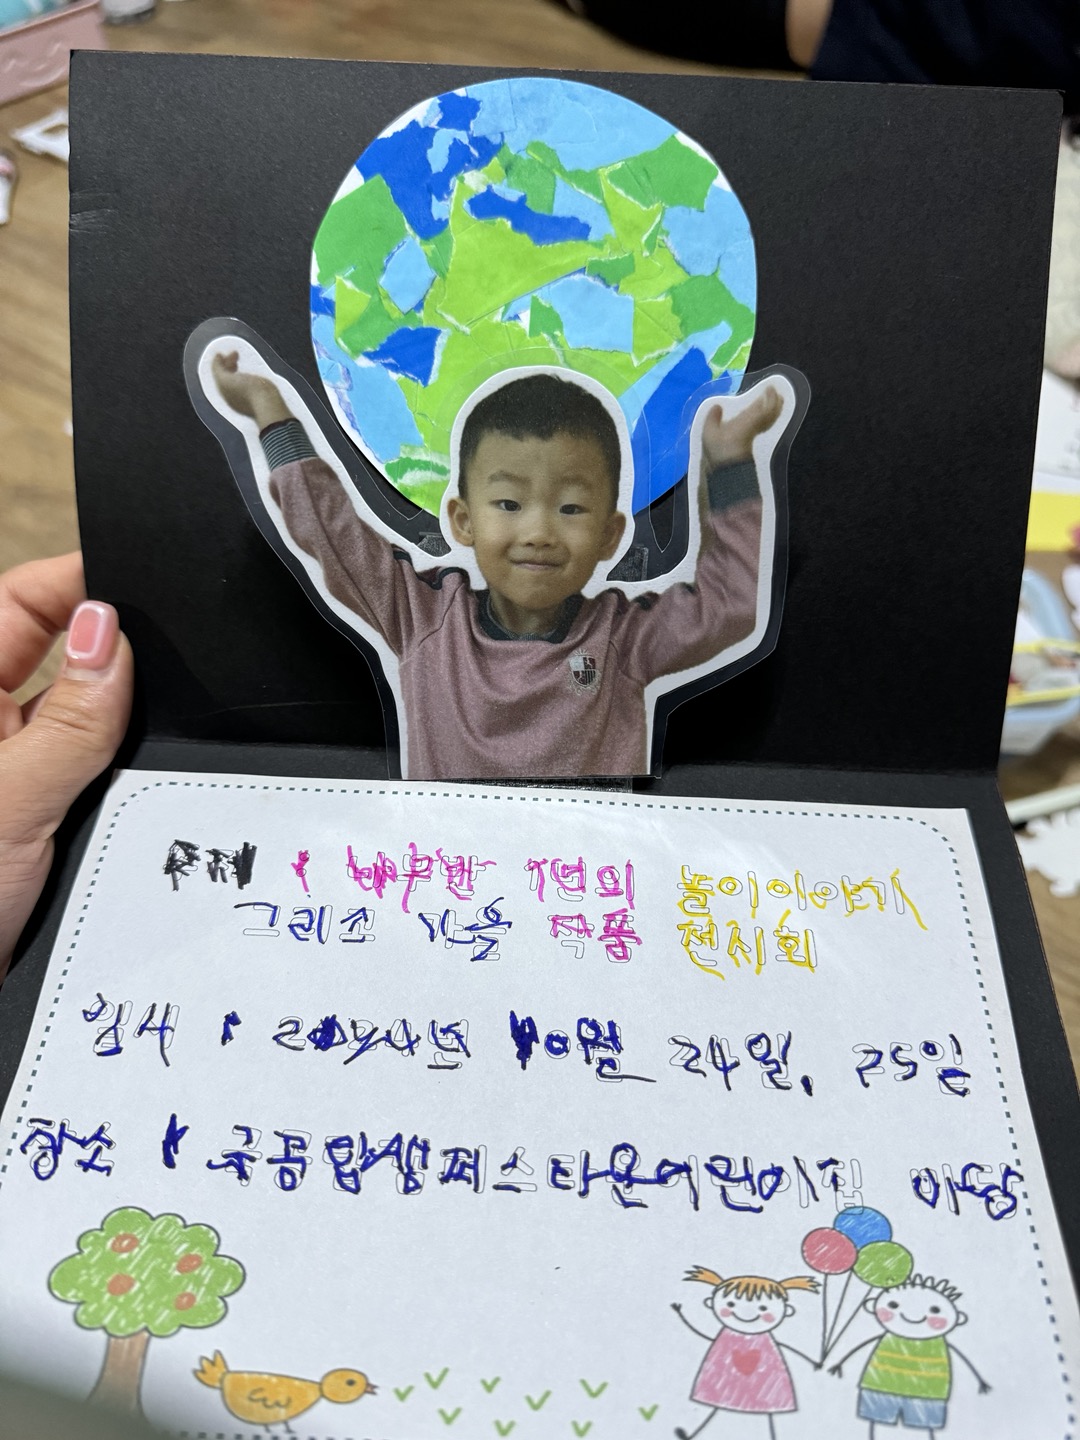 주제 : 나무반 1년의 놀이이야기
그리고 가을 작품 전시회
일시 : 2024년 10월 24일, 25일
장소 : 국공립쌤페스타운어린이집 마당